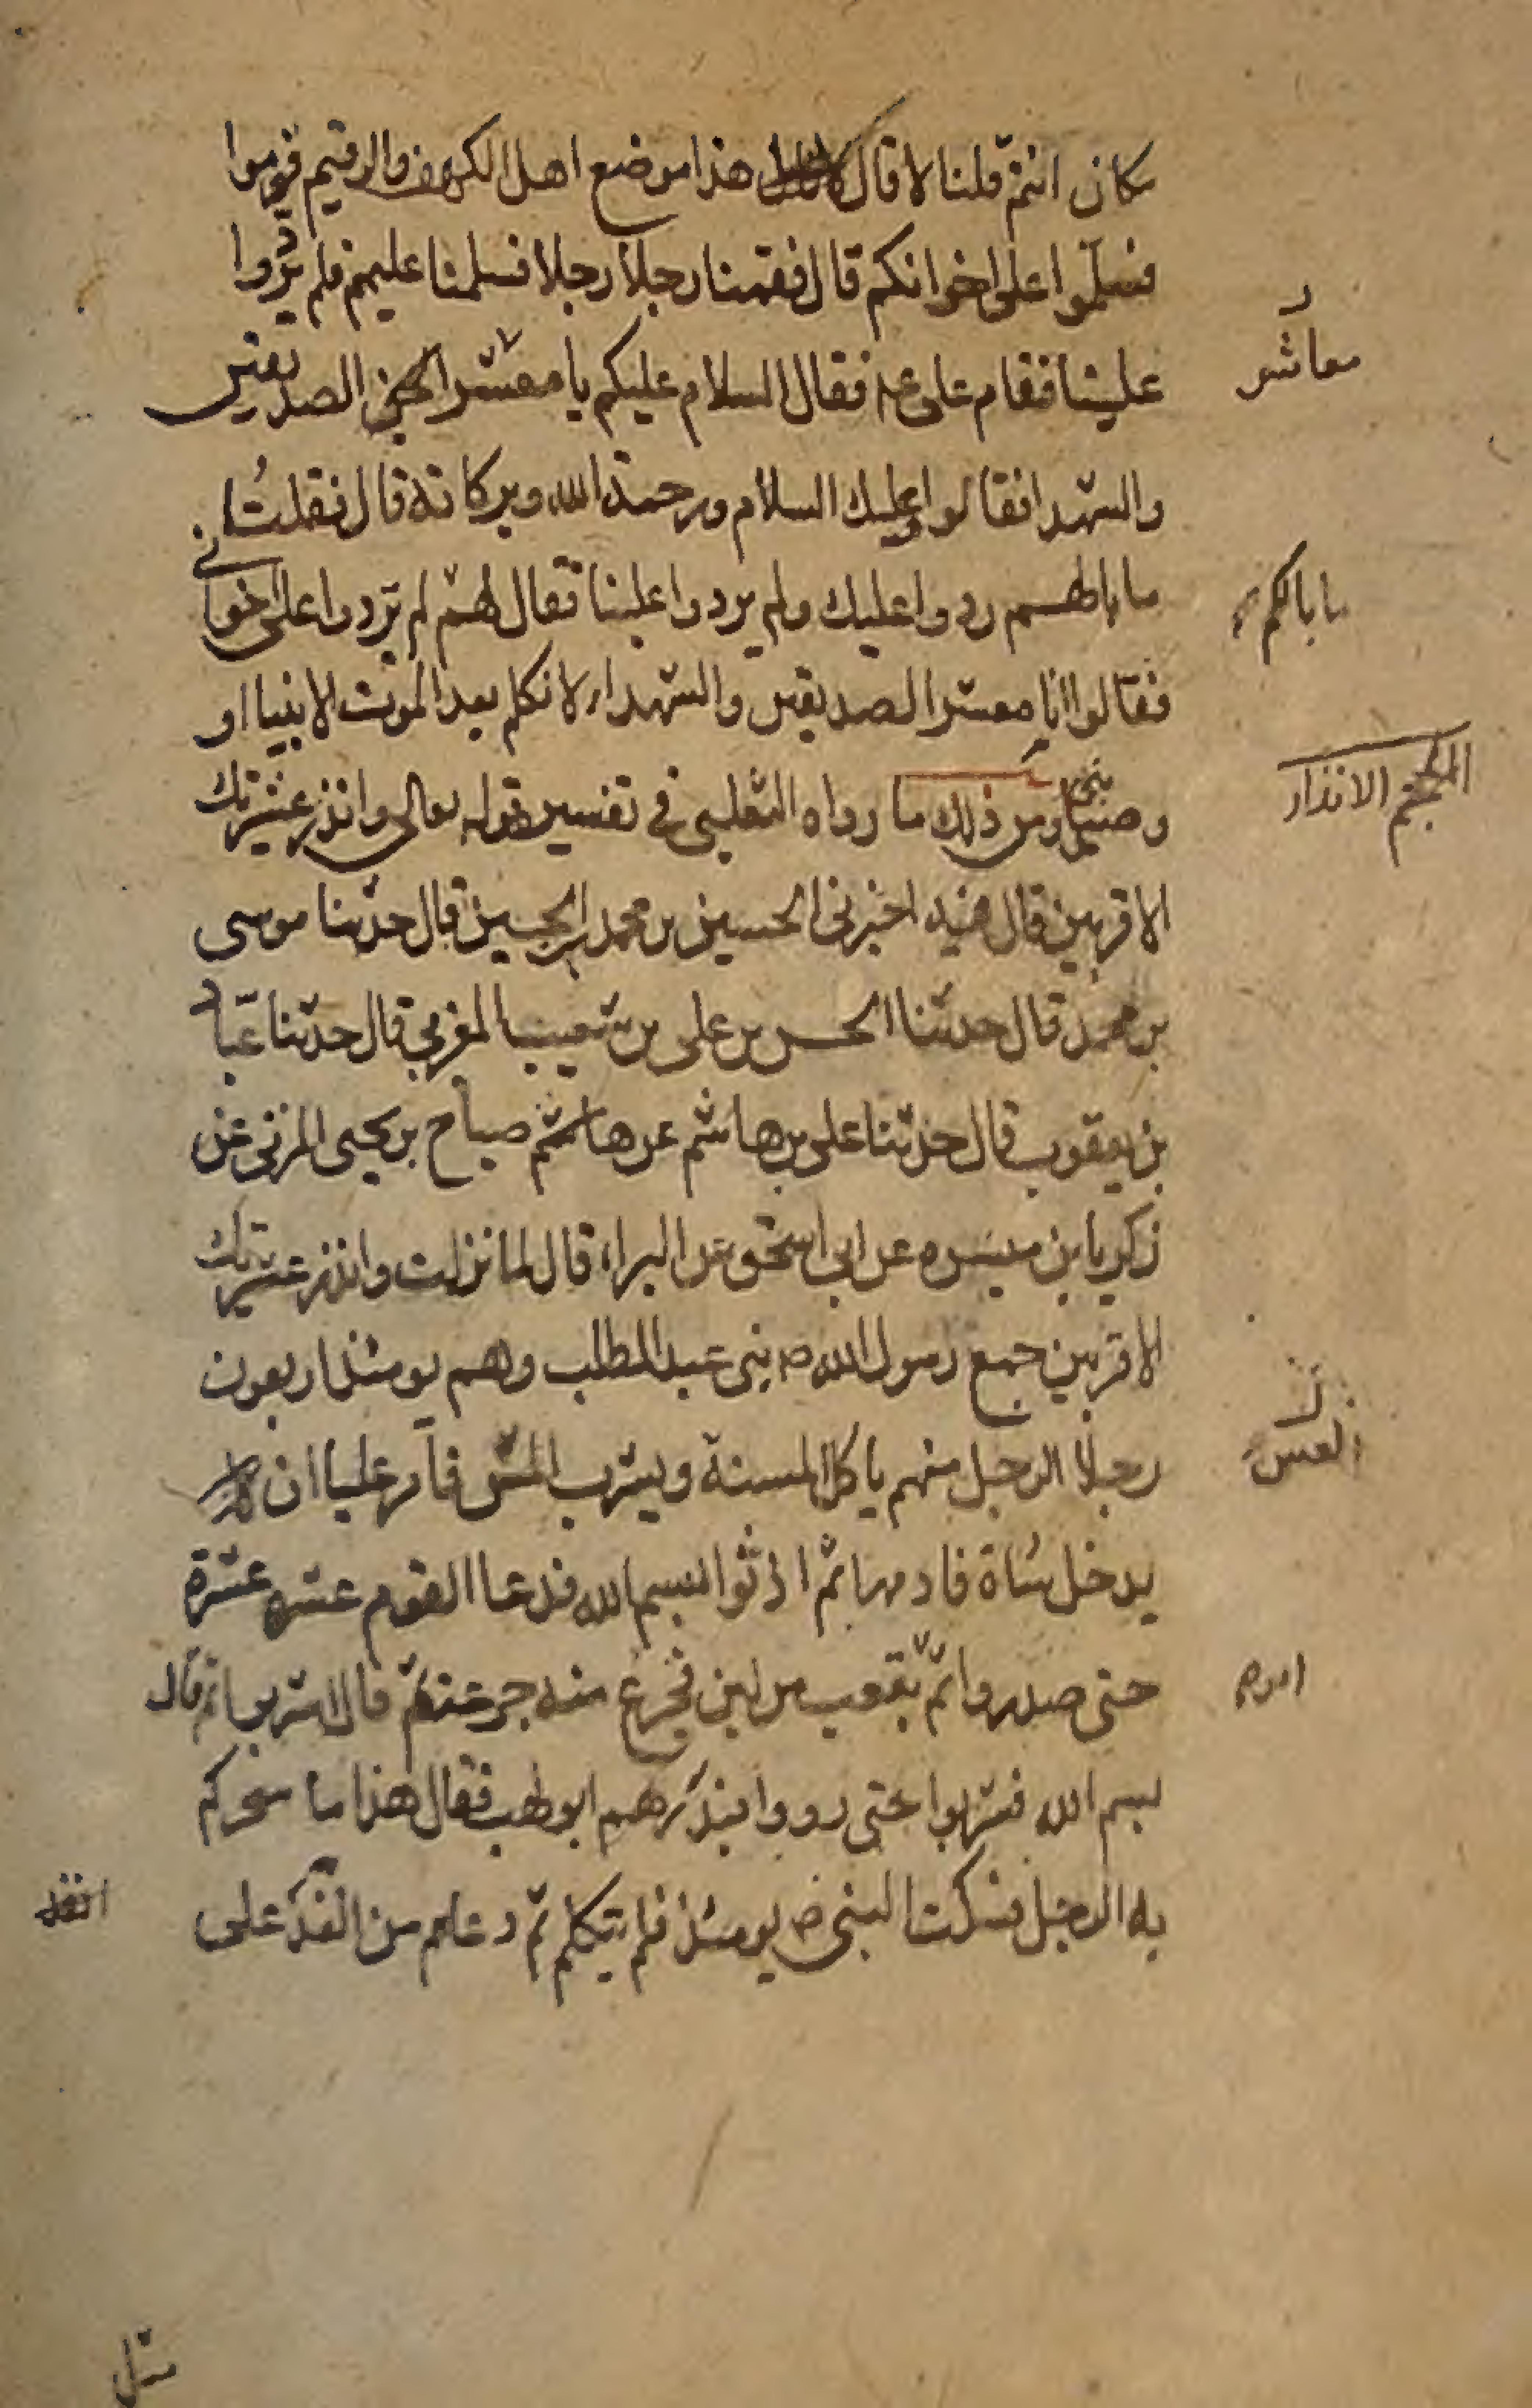 مكان انتم قلنا لا قال هذا موضع اهل الكهف والرقيم قوموا
فسلموا على اخوانكم قال فقمنا رجلا رجلا فسلمنا عليهم فلم يردوا
علينا فقام على فقال السلام عليكم يا معشر الصديقين
معاشر
والشهدا فقالوا عليك السلام ورحمة الله وبركاته قال فقلت
ما بالهم ردوا عليك ولم يردوا علينا فقال لهم لم تردوا على اخوانى
ما بالكم
فقالوا انا معشر الصديقين والشهداء لا نكلم بعد الموت الا نبيا او
وصيا ومن ذلك ما رواه الثعلبى فى تفسير قوله تعالى وانذر عشيرتك
الانذار
الاقربين قال اخبرنى الحسين بن محمد بن الحسين قال حدثنا موسى
بن محمد قال حدثنا الحسن بن على بن شعيب المغربي قال حدثنا عباد
بن يعقوب قال حدثنا على بن هاشم عن هاشم صباح بن يحيى المزنى عن
زكريا بن ميسره عن ابى اسحق عن البراء قال لما نزلت وانذر عشيرتك
الاقربين جمع رسول الله ص بنى عبد المطلب وهم يومئذ اربعون
رجلا الرجل منهم ياكل المسنة ويشرب العس فامر عليا ان
العس
يدخل شاة فادمها ثم ادنوا بسم الله فدعا القوم عشره عشرة
حتى صدروا ثم بقعب من لبن فجرع منه جرعة ثم قال اشربوا ثم قال
بسم الله فشربوا حتى رووا فبدرهم ابو لهب فقال هذا ما سحركم
به الرجل فسكت النبى ص يومئذ فلم يتكلم ثم دعاهم من الغد على
مثل